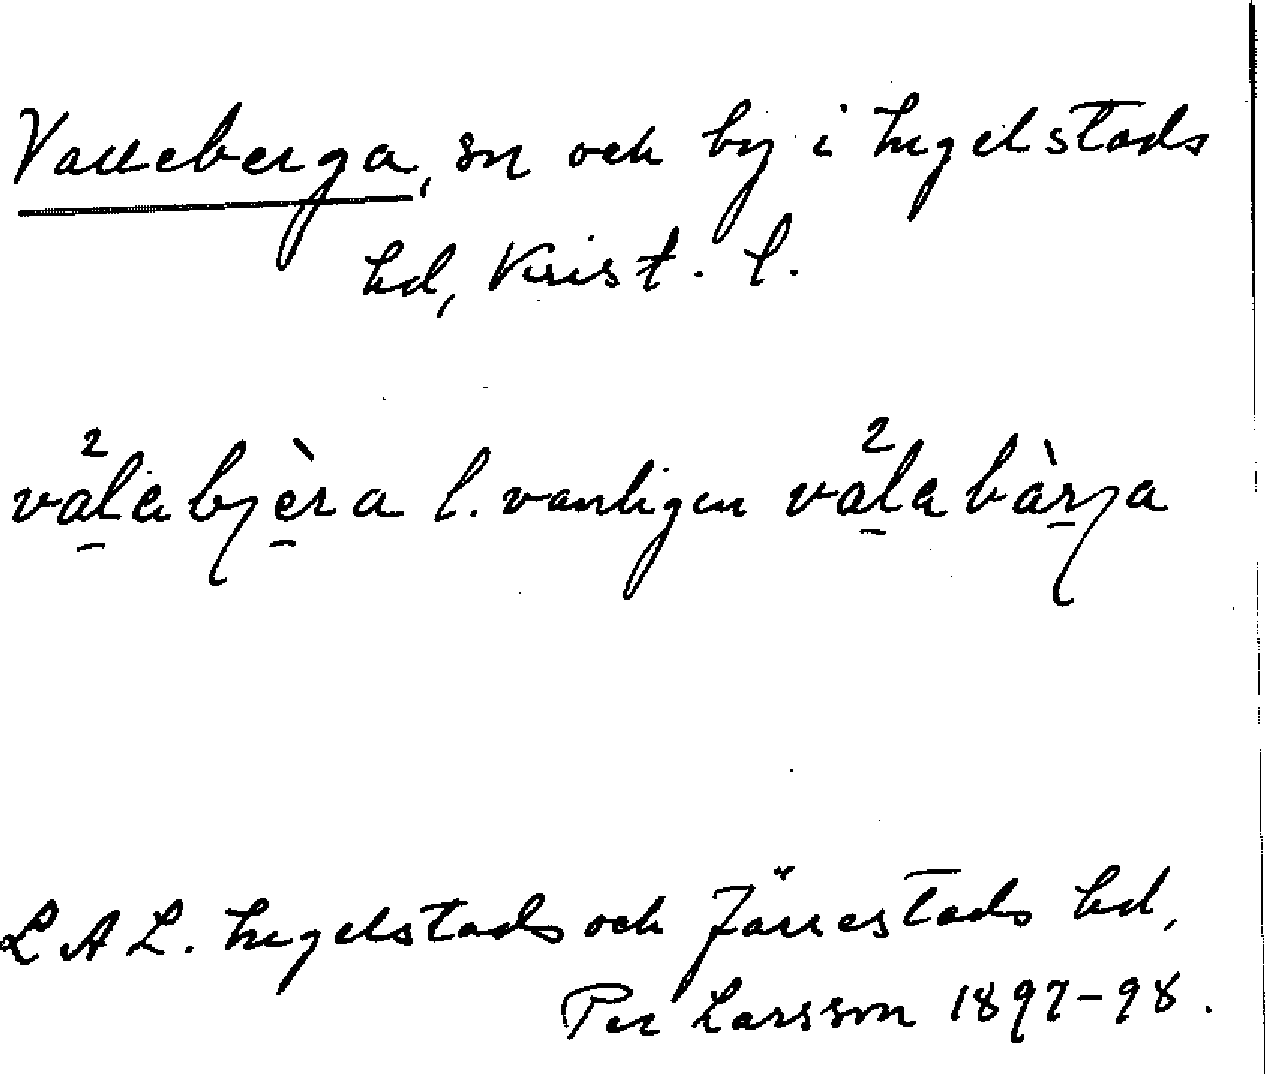 Valleberga, sn och by i Ingelstads
hd, Krist. l.
välabjèra l. vanligen välabàrja
LAL. Ingelstads och Järrestads hd,
Per Larsson 1897-98.